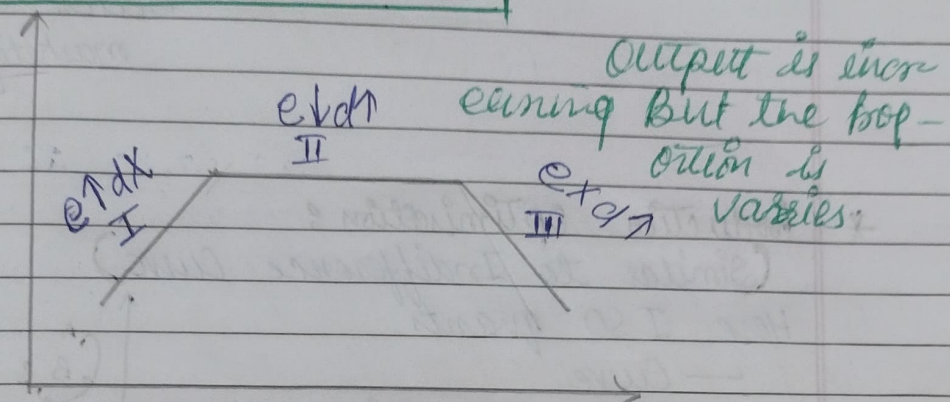 Output is incr
easing But the prop-
ortion is
varries.
e↓d↑
II
e↑dX
I
eXd↑
III